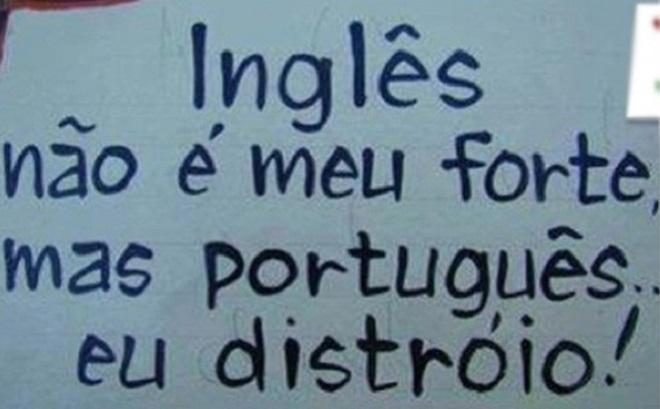 Inglês
não é meu forte,
mas português..
eu distróio!